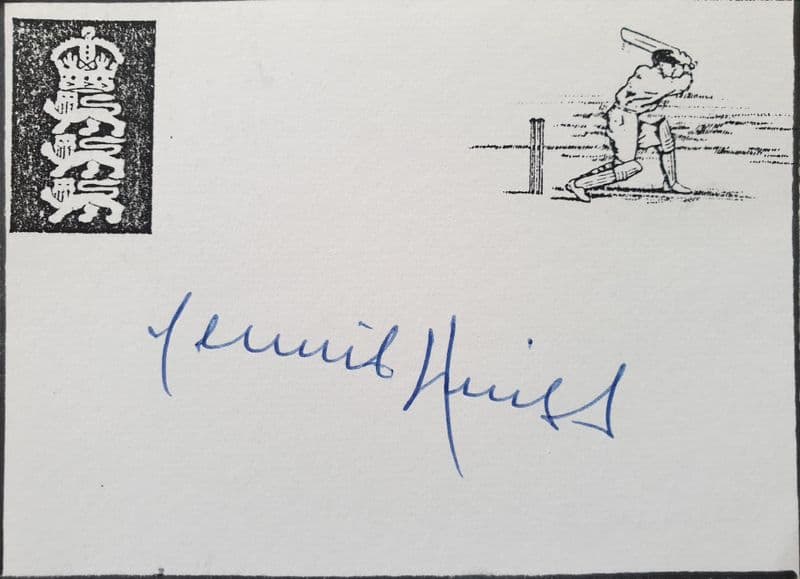 Dennis Amiss